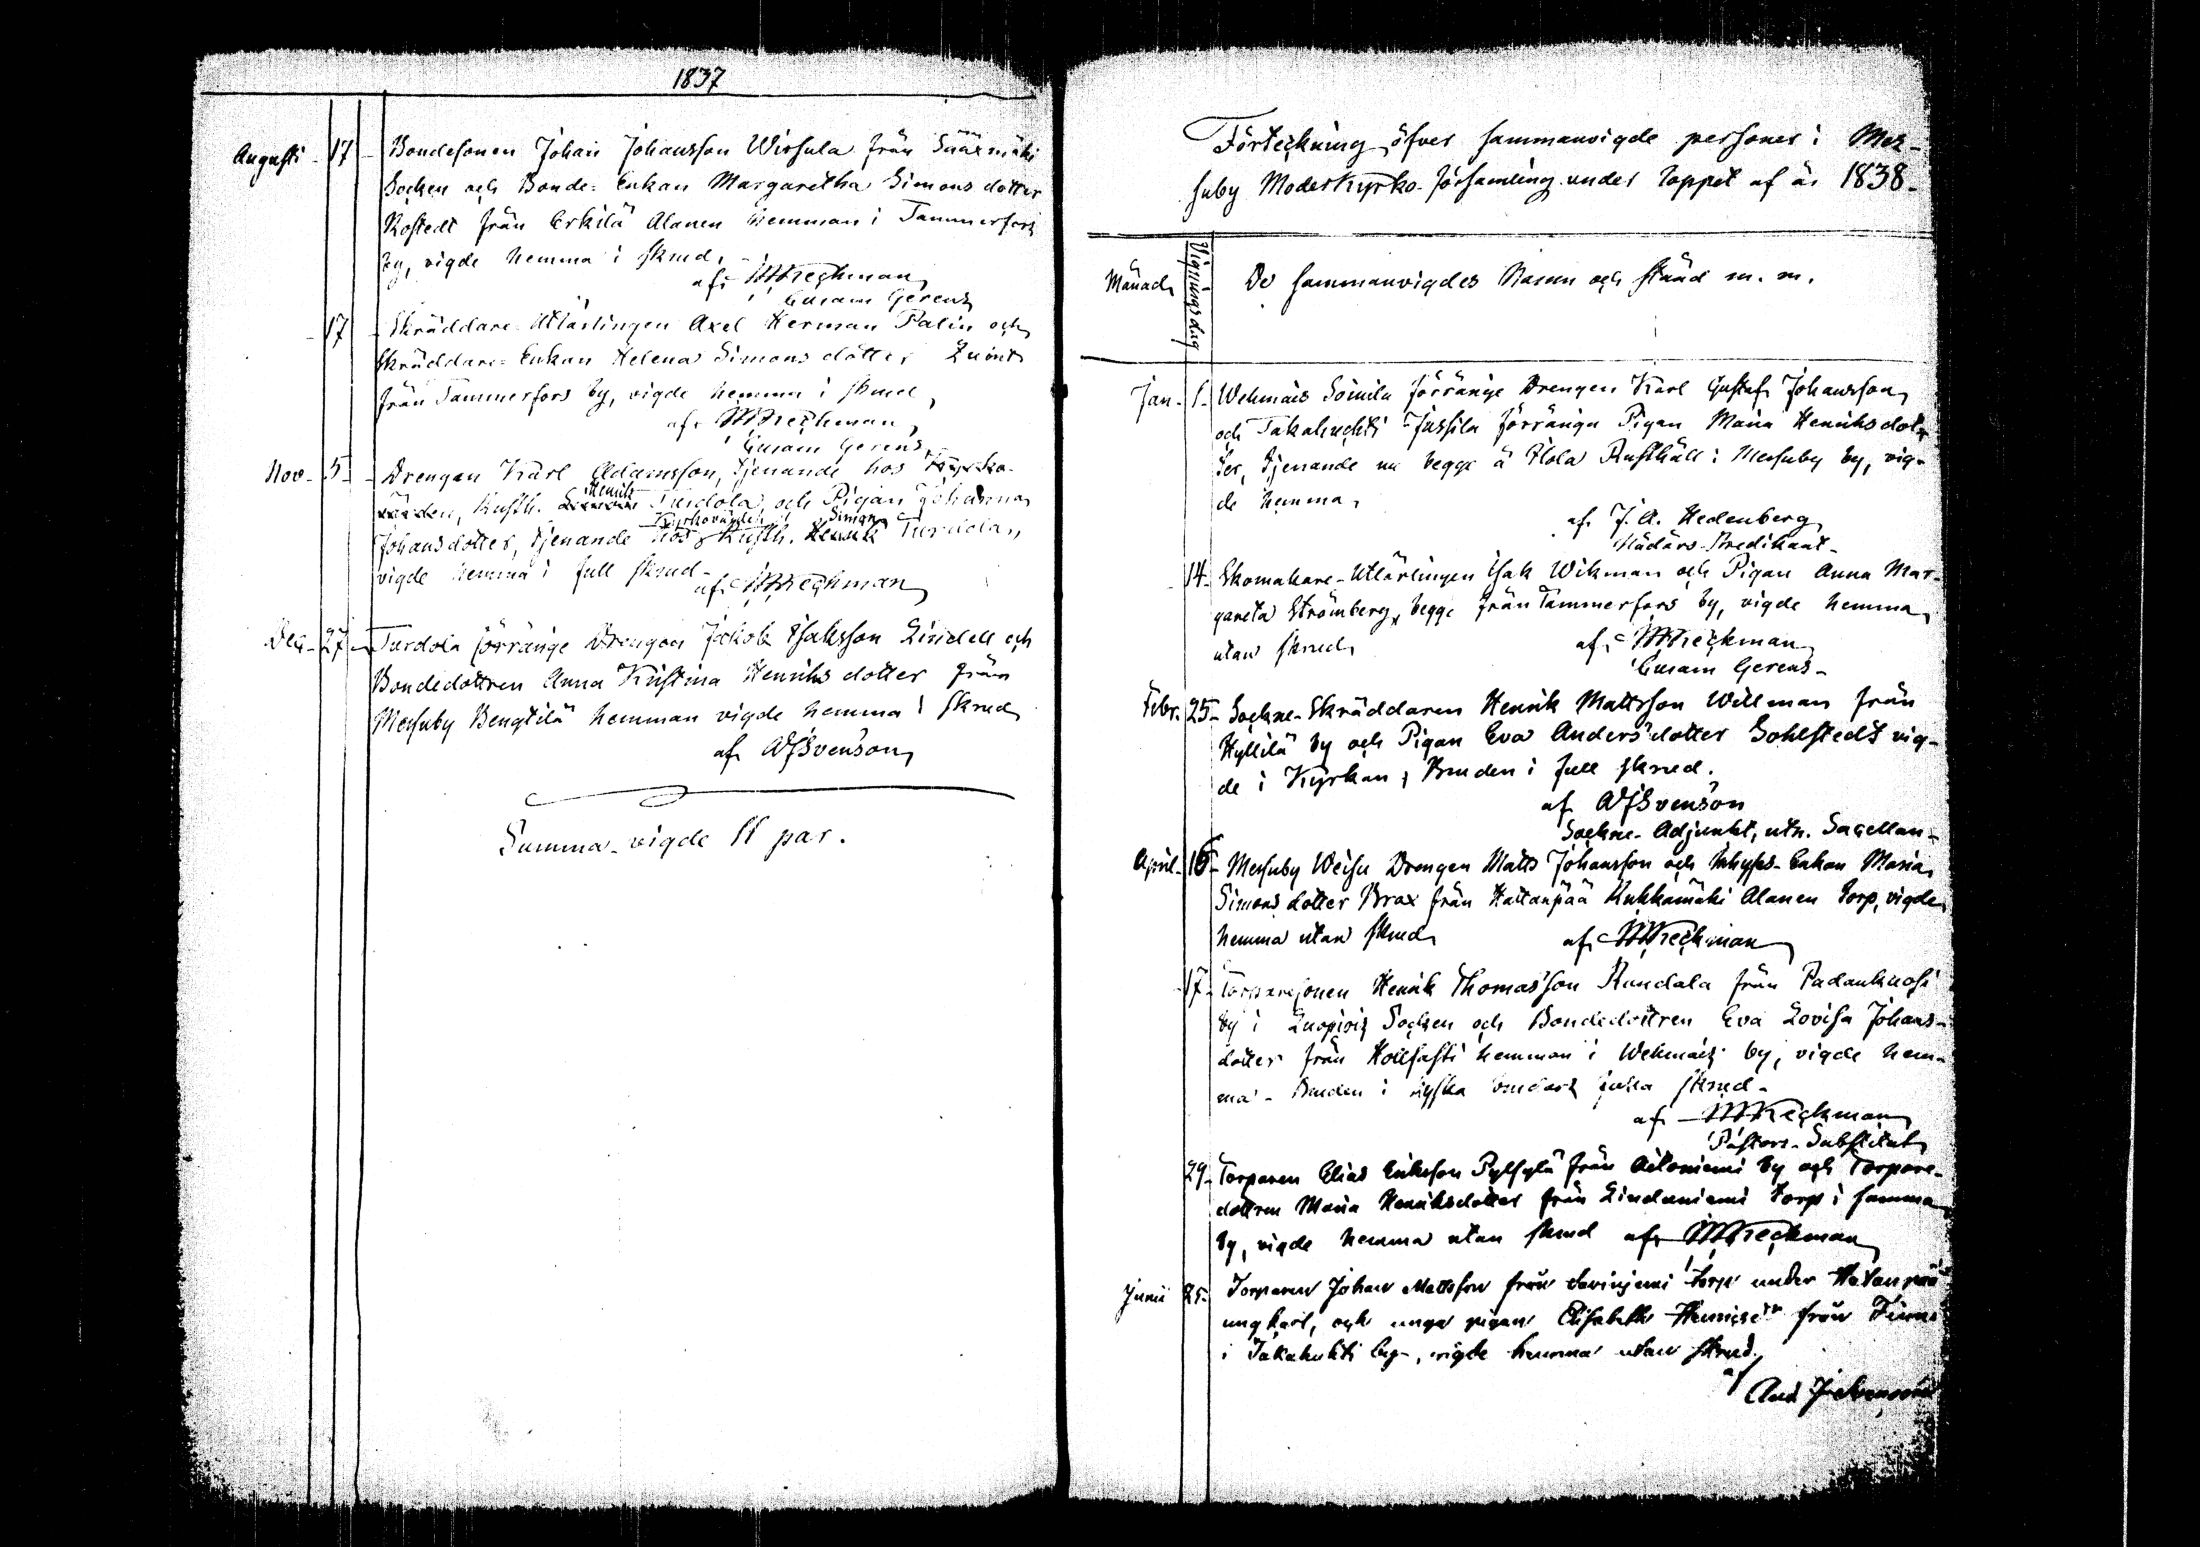 1837
Augusti - 17 - Bondesonen Johan Johansson Wirsula från Sääxmäki
Socken och Bonde-Enkan Margaretha Simons dotter
Rostedt från Erkilä Alanen hemman i Tammerfors
by, vigde hemma i skrud,
af MReckman
Curam Gerens
- 17 - Skräddare-Utlärlingen Axel Herman Palin och
Skräddare-Enkan Helena Simons dotter Quint
från Tammerfors by, vigde hemma i skrud,
af MReckman,
Curam Gerens
Nov - 5 - Drengen Karl Adamsson, tjenande hos Kyrko-
värden, Rusth. Henrik Turdola, och Pigan Johanna
Kyrkovärden Simon
Johansdotter, tjenande hos Rusth. Henrik Turdola,
vigde hemma i full skrud -
af MReckman
Dec - 27 - Turdola förränge Drengen Jakob Isaksson Lindell och
Bondedottren Anna Kristina Henriks dotter från
Messuby Bengtilä hemman vigde hemma i skrud
af AJSvenson,
Summa - vigde 11 par.
Förteckning öfver sammanvigde personer i Mes-
suby Moderkyrko-församling under loppet af år 1838.
Månad
Vigningsdag
De sammanvigdes Namn och stånd m. m.
Jan - 1 - Wehmais Soinila förränge Drengen Karl Gustaf Johansson
och Takahuchti Jussila förränga Pigan Maria Henriksdot-
ter, tjenande nu begge å Flola Rusthåll i Messuby by, vig-
de hemma,
af J. A. Hedenberg
Nådårs-Predikant -
14 - Skomakare-Utlärlingen Isak Wikman och Pigan Anna Mar-
gareta Strömberg, begge från Tammerfors by, vigde hemma
utan skrud
af MReckman
Curam Gerens -
Febr. 25 - Sockne-Skräddaren Henrik Mattsson Willman från
Hyllilä by och Pigan Eva Anders dotter Sohlstedt vig-
de i Kyrkan, Bruden i full skrud.
af AJSvenson
Sockne-Adjunkt, utn. Sacellan -
April - 16 - Messuby Weisu Drengen Matts Johansson och Inhyses-Enkan Maria
Simons dotter Brax från Hattanpää Kukkamäki Alanen torp, vigde
hemma utan skrud
af MReckman
17 - Torparesonen Henrik Thomasson Rundala från Padankuosi
by i Luopiois Socken och Bondedottren Eva Lovisa Johans-
dotter från Hollsasti hemman i Wehmais by, vigde hem-
ma - Bruden i skrud -
af MReckman
Pastors-Substitut
29 - Torparen Elias Eriksson Pylsylä från Aitoniemi by och Torpare-
dottren Maria Henriksdotter från Lindaniemi torp i samma
by, vigde hemma utan skrud af MReckman
Junii 25 - Torparen Johan Mattsson från Savinjemi torp under Hatanpää
ungkarl, och unga pigan Elisabeth Henricsdr från Finni
i Takahuhti by, vigde hemma utan skrud.
af
And J Svenson